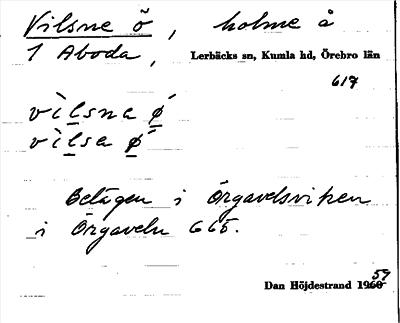 Vilsne ö, holme å
1 Aboda, Lerbäcks sn, Kumla hd, Örebro län
617
vìlsna ǿ
vìlsa ǿ
Belägen i Örgavelsviken
i Örgaveln 665.
Dan Höjdestrand 1960 59